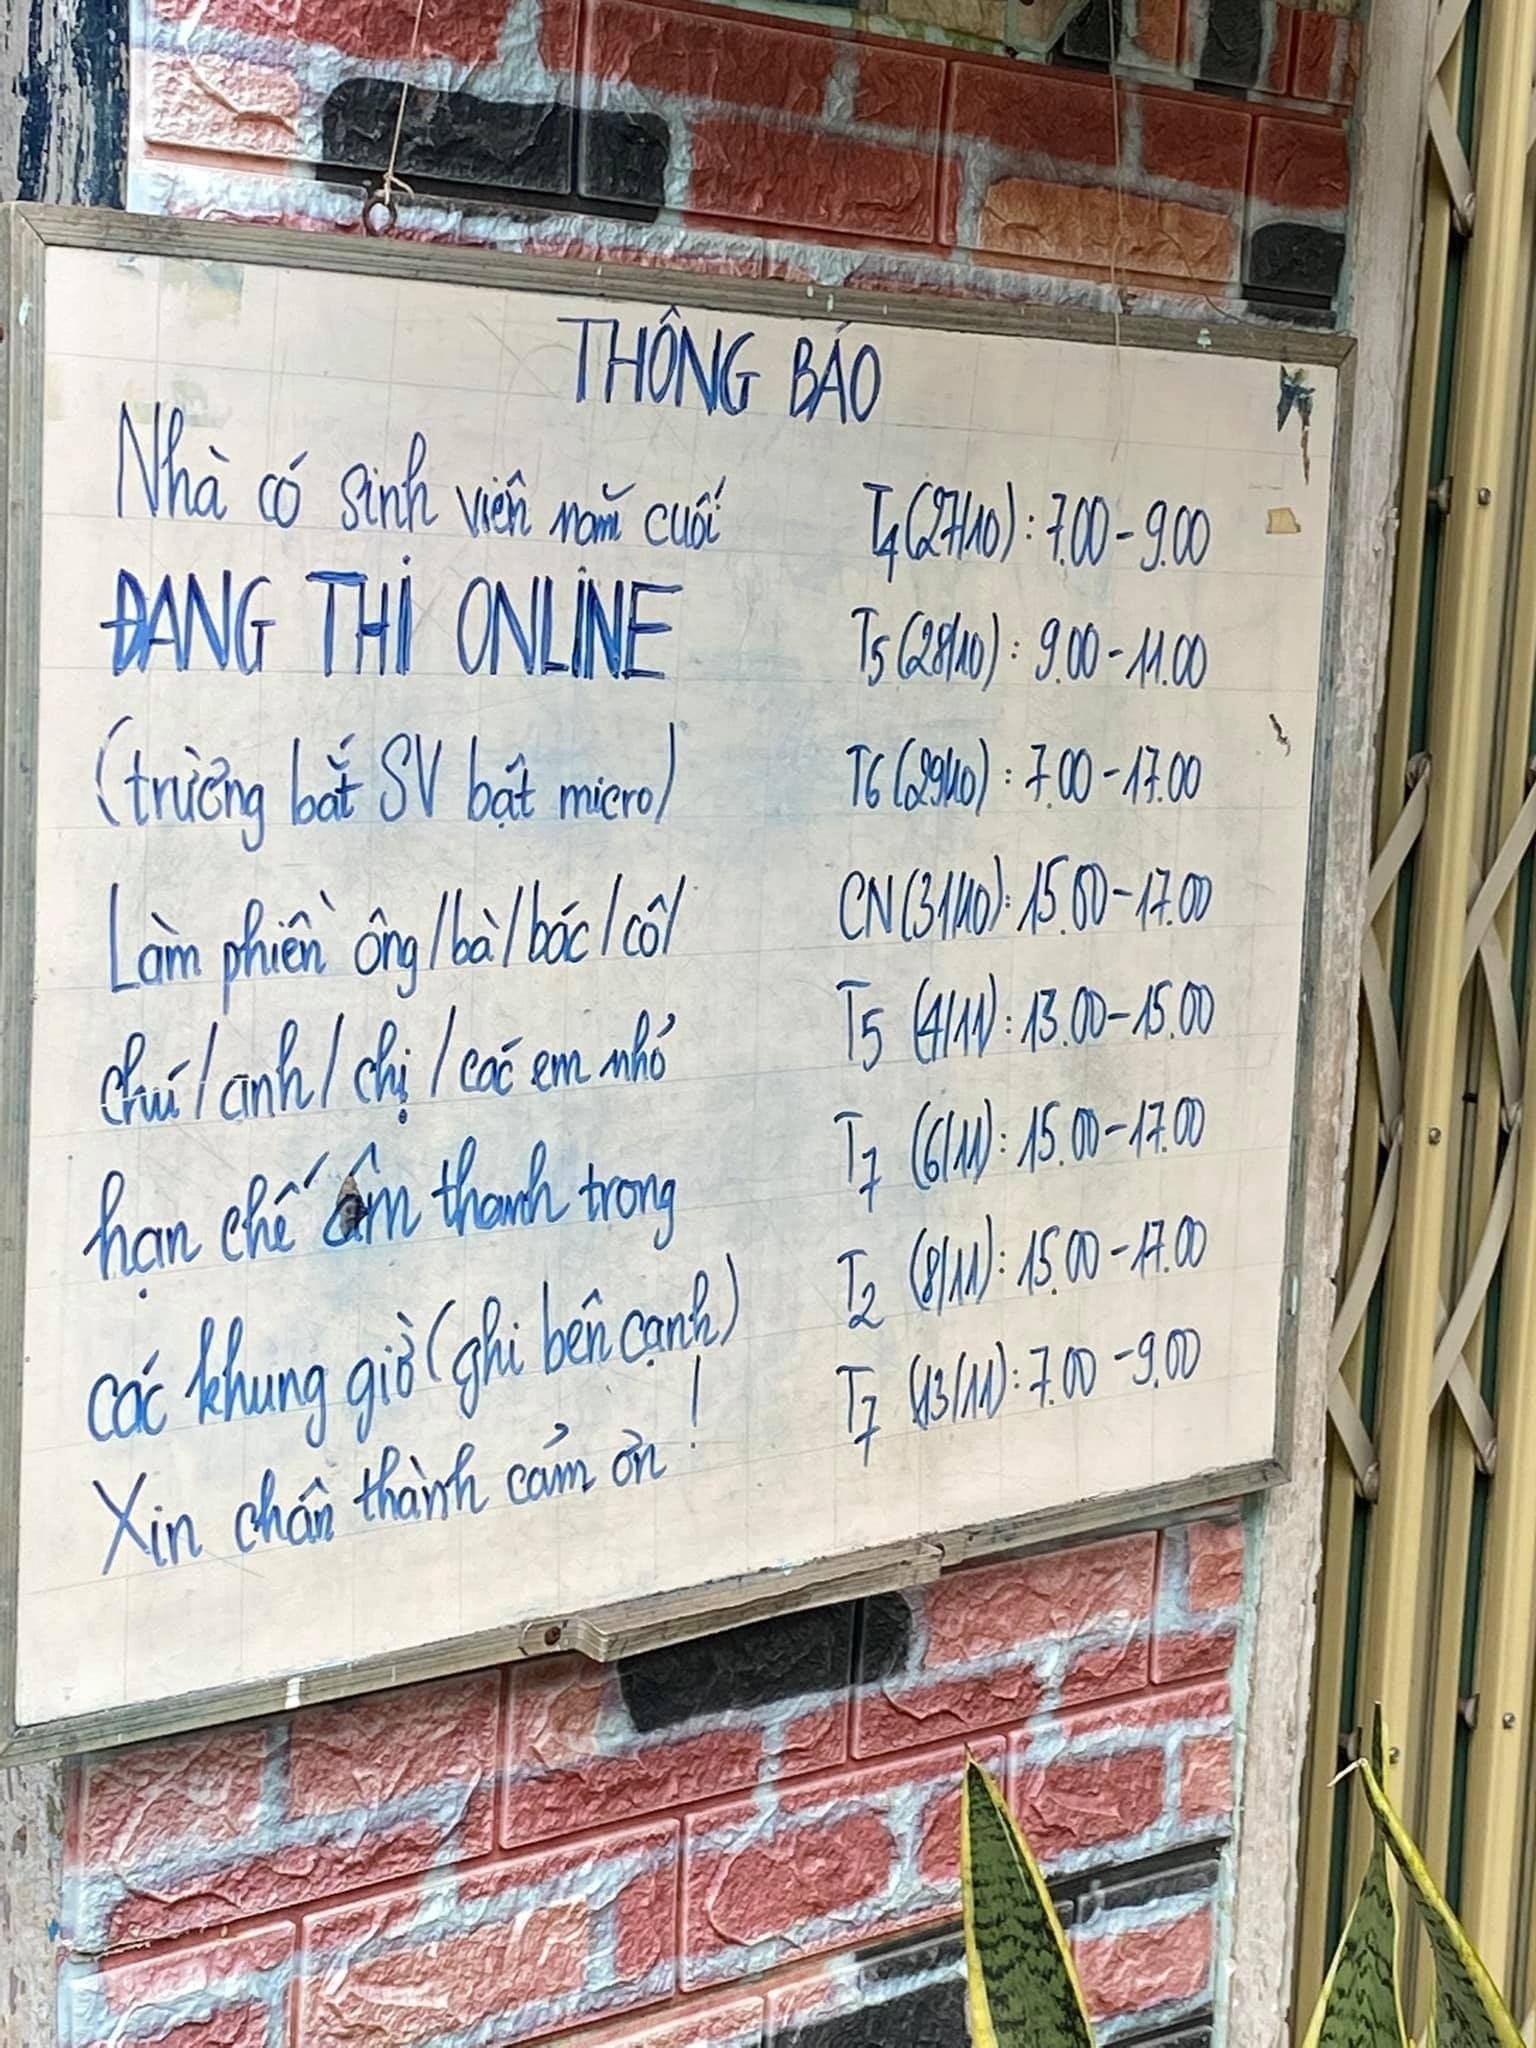 THÔNG BÁO
Nhà có sinh viên năm cuối
ĐANG THI ONLINE
(trường bắt SV bật micro)
Làm phiền ông/bà/bác/cô/
chú/anh/chị/các em nhỏ
hạn chế âm thanh trong
các khung giờ (ghi bên cạnh)
Xin chân thành cảm ơn!
T4 (27/10): 7.00 - 9.00
T5 (28/10): 9.00 - 11.00
T6 (29/10): 7.00 - 17.00
CN (31/10): 15.00 - 17.00
T5 (4/11): 13.00 - 15.00
T7 (6/11): 15.00 - 17.00
T2 (8/11): 15.00 - 17.00
T7 (13/11): 7.00 - 9.00